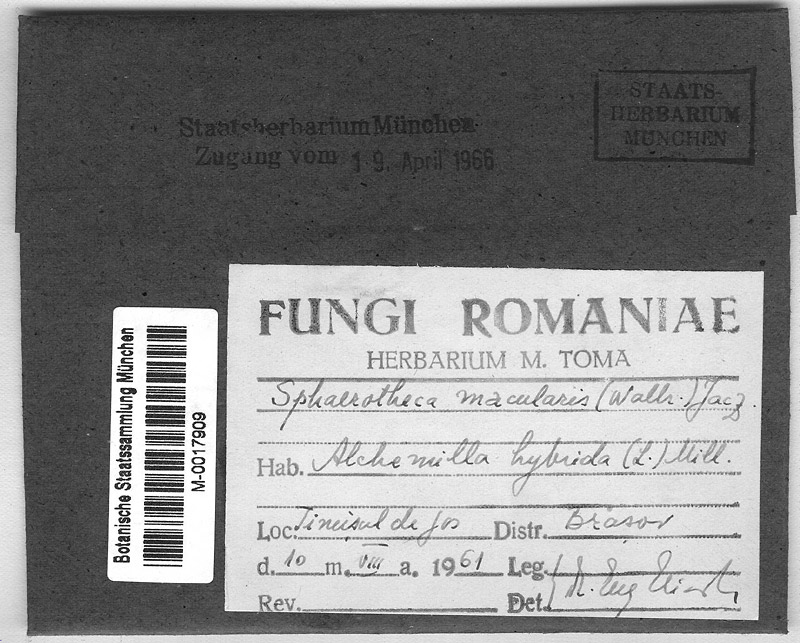 STAATS-
HERBARIUM
MÜNCHEN
Staatsherbarium München
Zugang vom 19. April 1966
Botanische Staatssammlung München
M-0017909
FUNGI ROMANIAE
HERBARIUM M. TOMA
Sphaerotheca macularis (Wallr.) Jacz.
Hab. Alchemilla hybrida (L.) Mill.
Loc. de Jos Distr. Brasov
d. 10 m. VIII a. 1961 Leg.
Rev. Det.